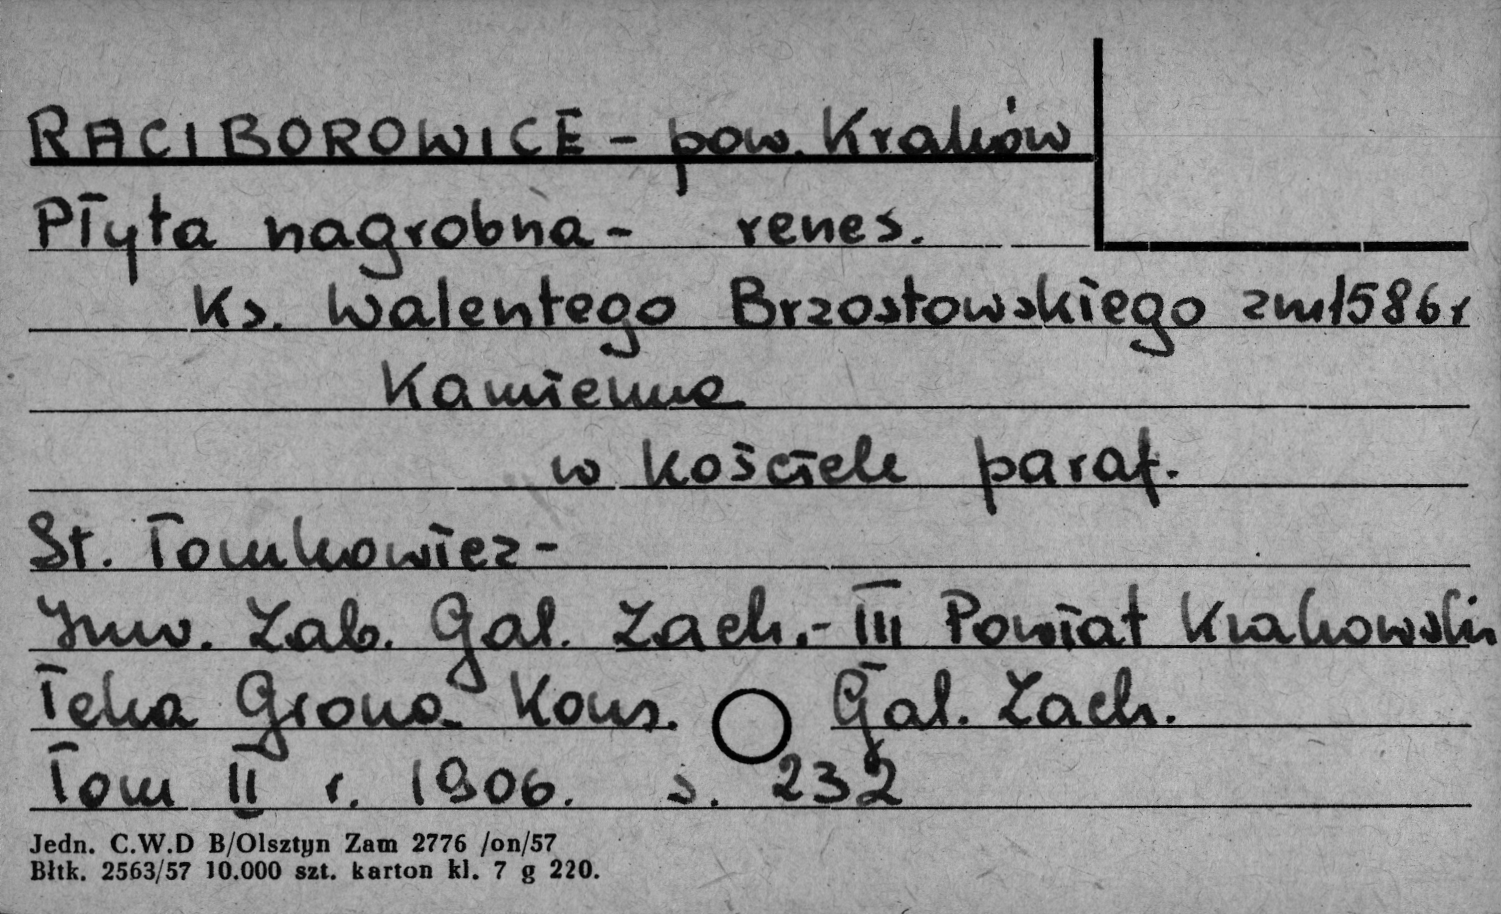 RACIBOROWICE - pow. Kraków
Płyta nagrobna - renes.
Ks. Walentego Brzostowskiego zm1586r
Kamienna
w kościele paraf.
St. Tomkowicz -
Inw. Zab. Gal. Zach. - III Powiat Krakowski
Teka Grona Kons. Gal. Zach.
Tom II r. 1906. s. 232
Jedn. C.W.D B/Olsztyn Zam 2776 /on/57
Błtk. 2563/57 10.000 szt. karton kl. 7 g 220.